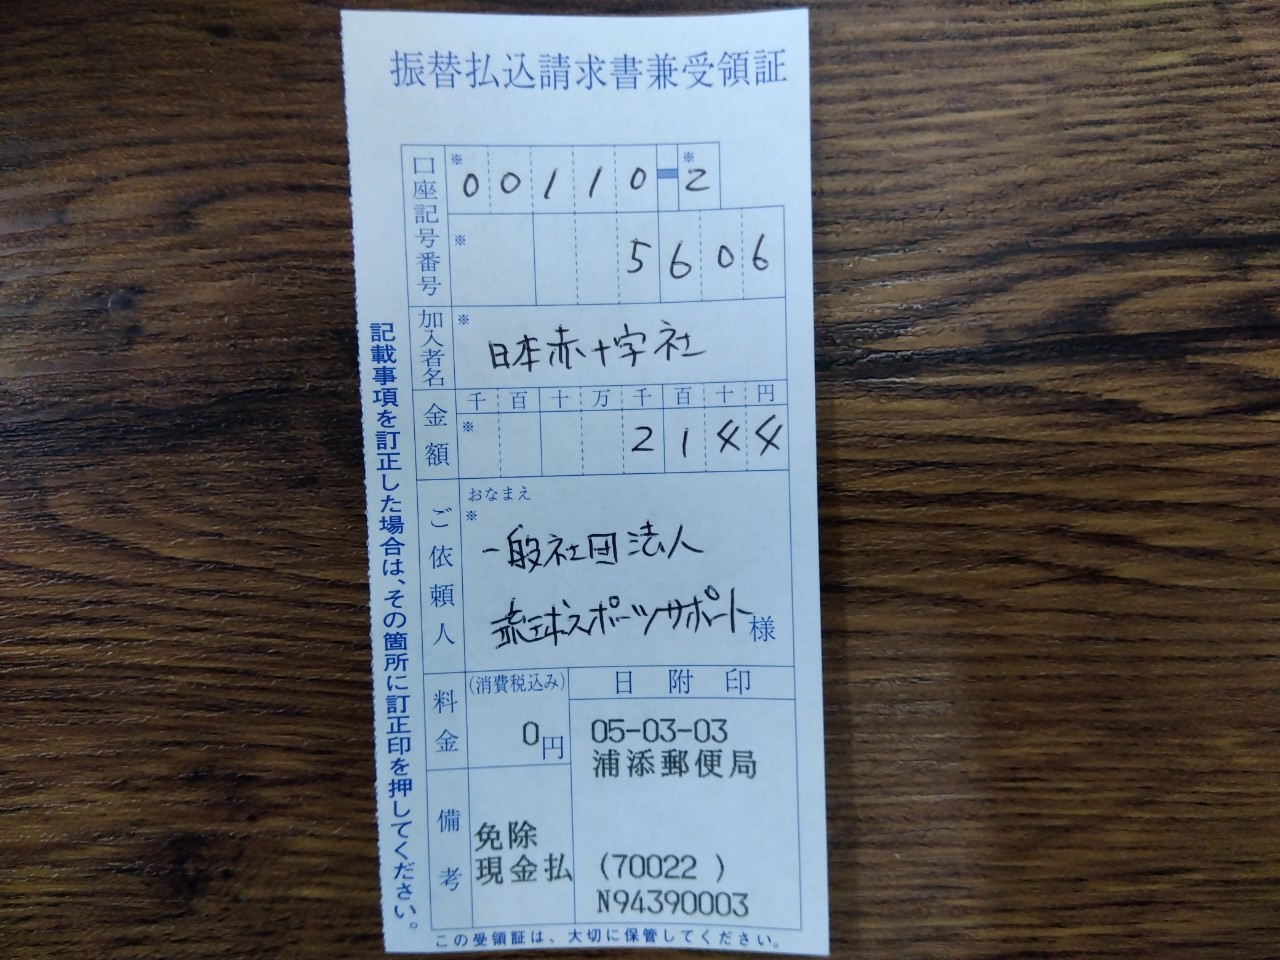 振替払込請求書兼受領証
口座記号番号
※ 00110-※2
※ 5606
加入者名
※ 日本赤十字社
金額
千 百 十 万 千 百 十 円
※ 2144
ご依頼人
おなまえ
※
一般社団法人
琉球スポーツサポート 様
料金
(消費税込み)
0円
日附印
05-03-03
浦添郵便局
備考
免除
現金払
(70022 )
N94390003
記載事項を訂正した場合は、その箇所に訂正印を押してください。
この受領証は、大切に保管してください。